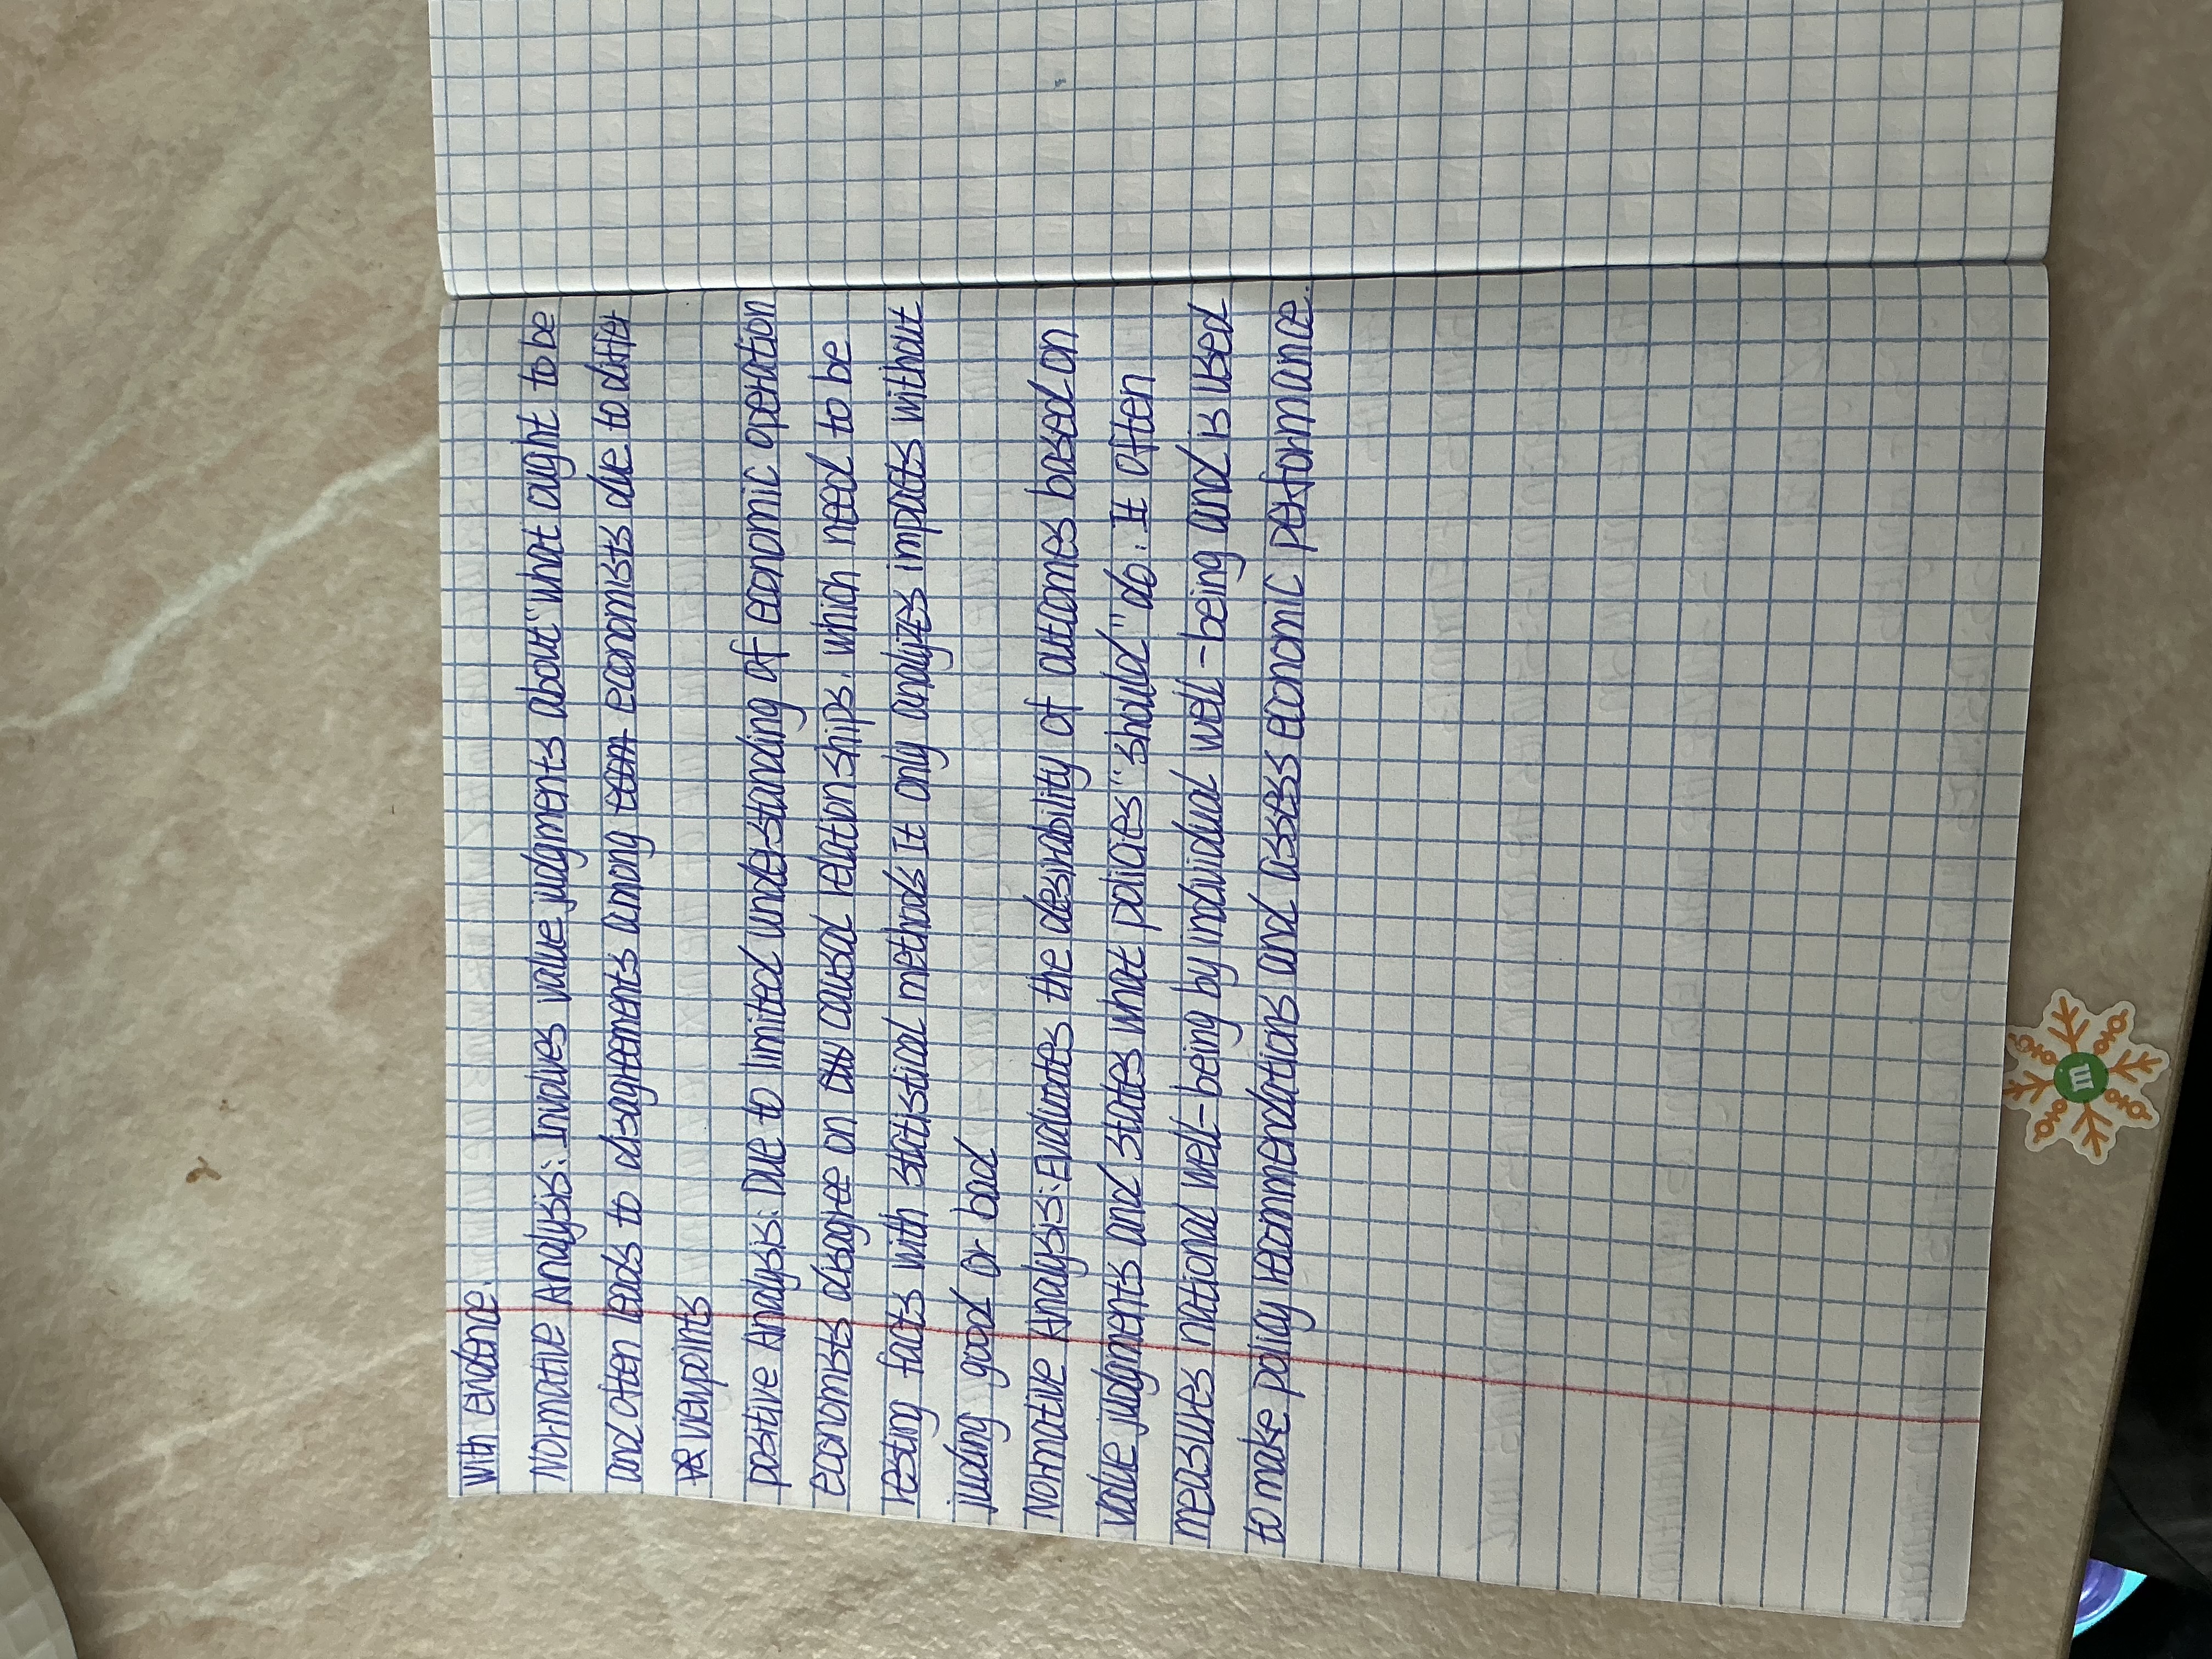 With evidence.
Normative Analysis: Involves value judgments about "what ought to be
and often leads to disagreements among economists due to differ
viewpoints
positive Analysis: Due to limited understanding of economic operation
economists disagree on causal relationships. which need to be
testing facts with statistical methods It only analyzes impacts without
juding good or bad
Normative Analysis: Evaluates the desirability of outcomes based on
value judgments and states what policies "should" do. It often
measures national well-being by individual well-being and is used
to make policy recommendations and assess economic performance.
m